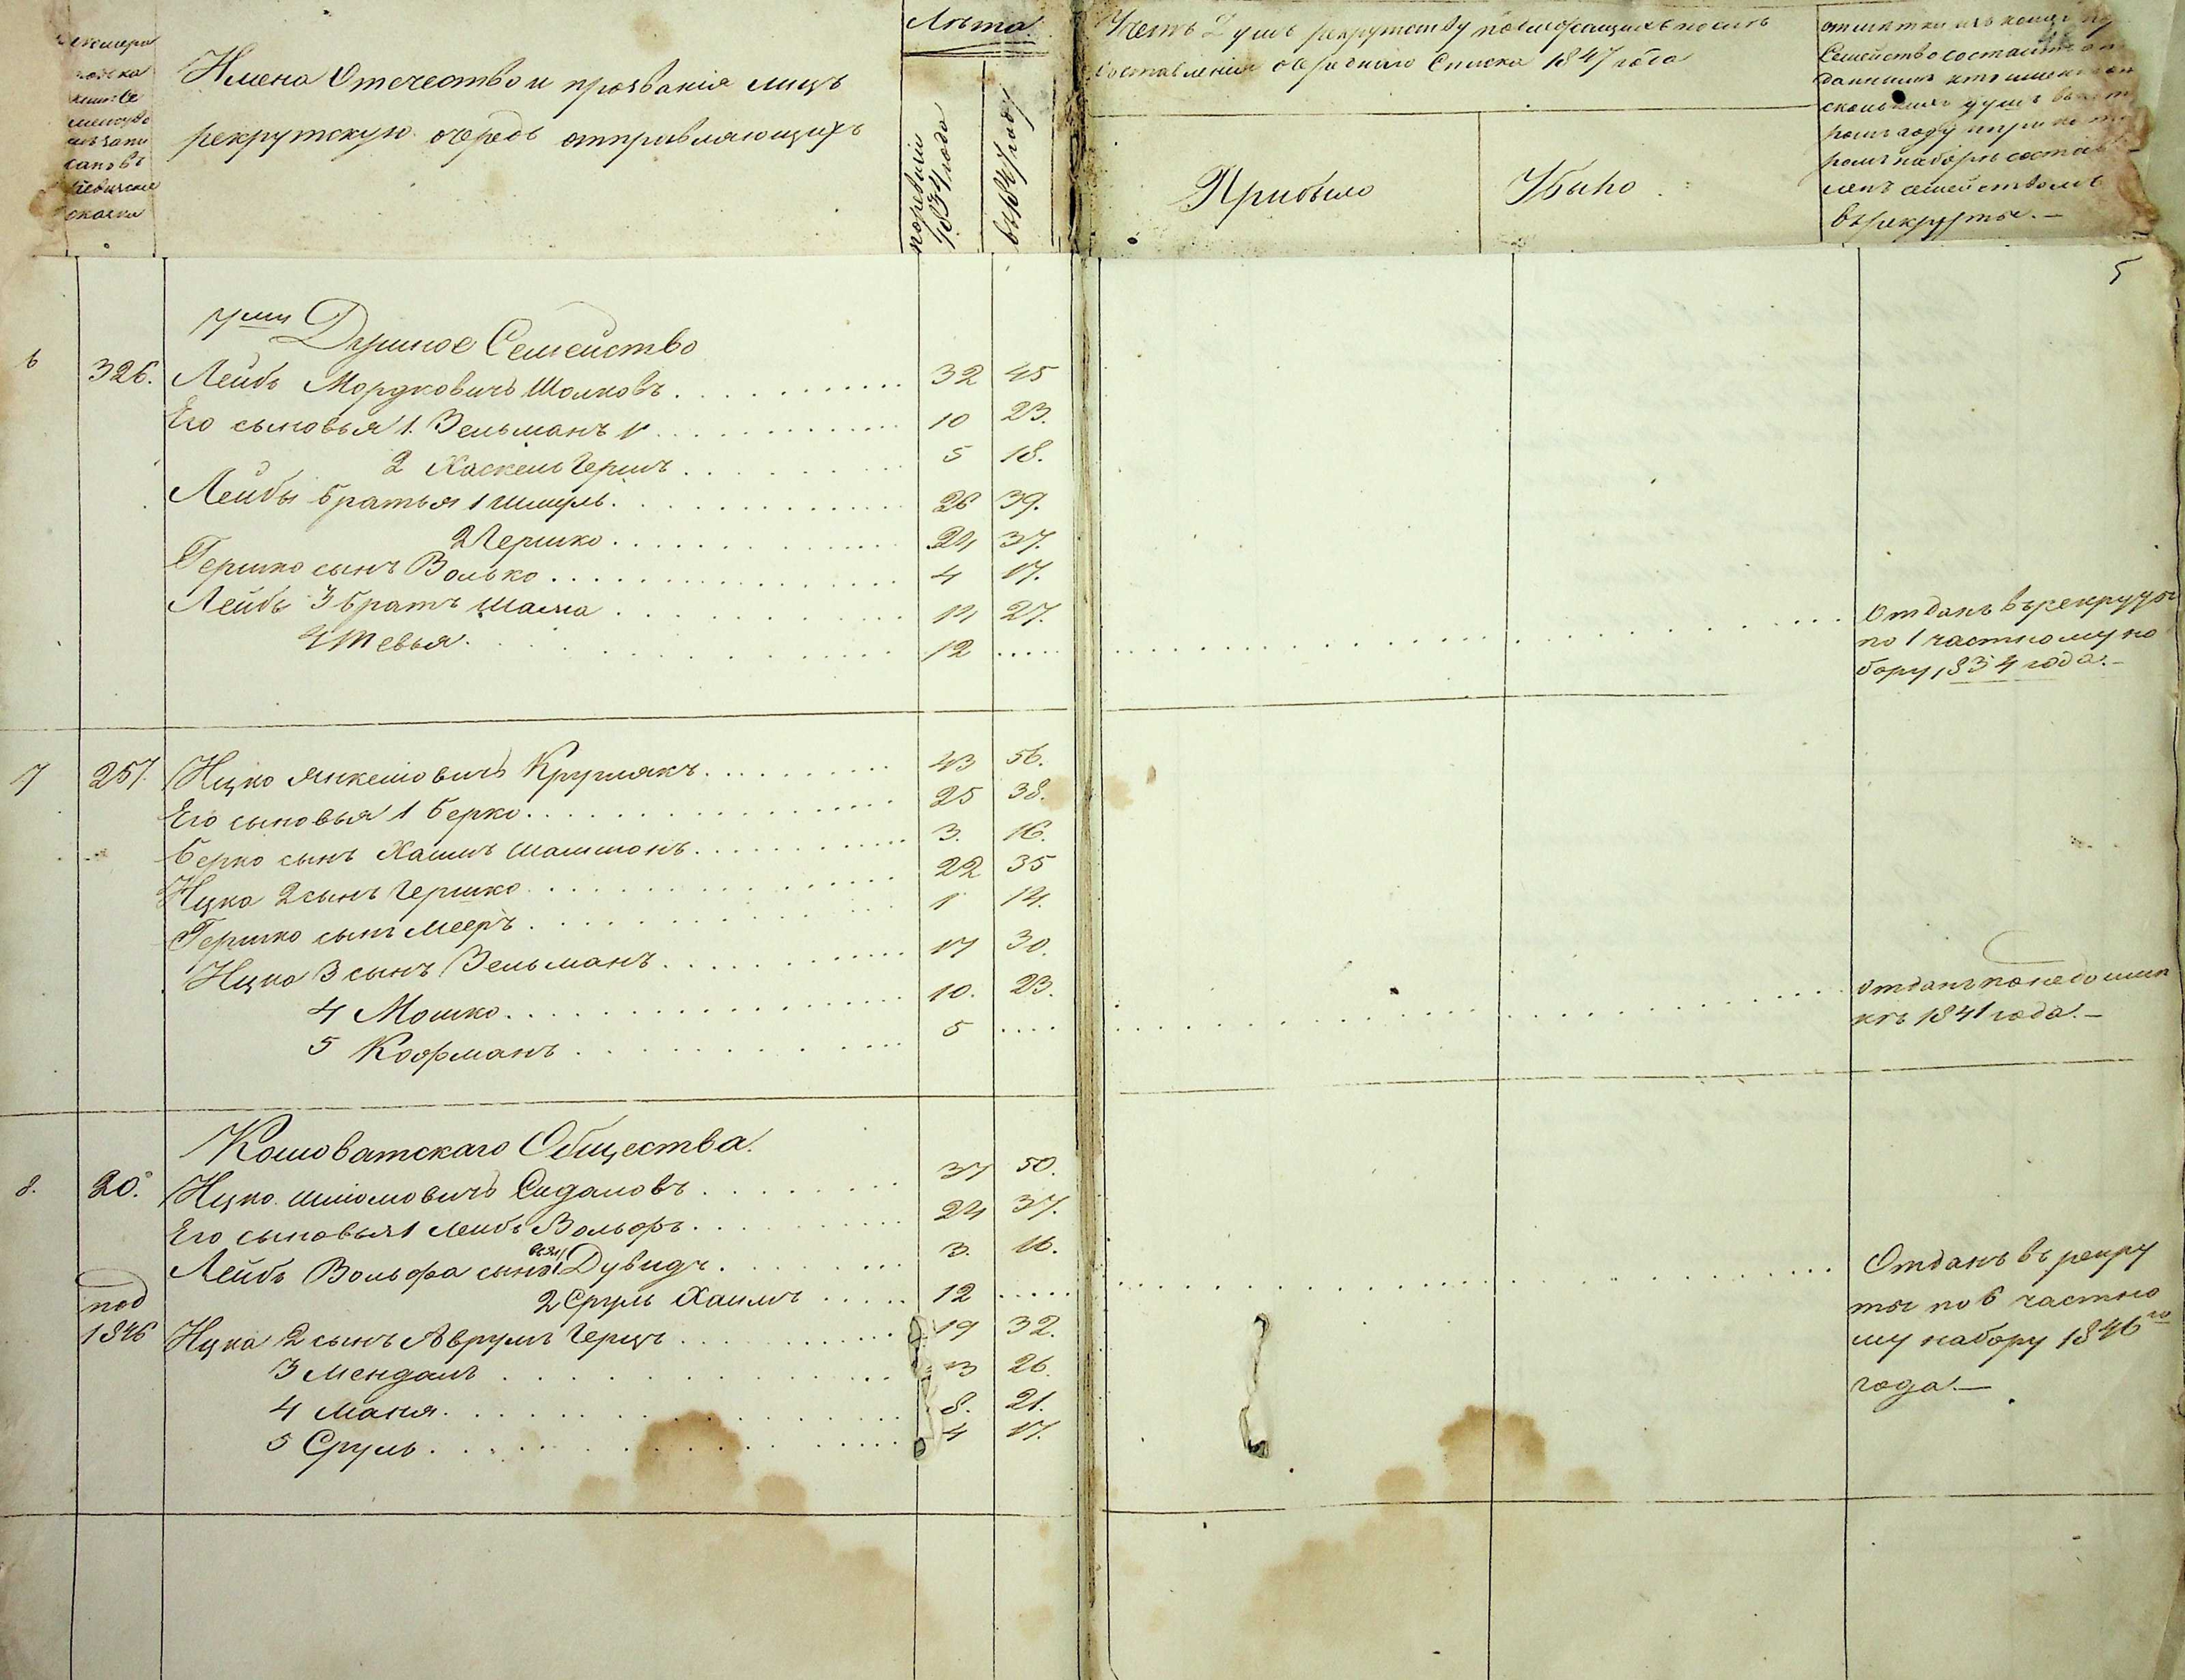 Имена Отечество и прозванія лицъ
рекрутскую очередь отправляющихъ
Лѣта
по ревизіи 1834 года
въ 1847 году
Счетъ душъ рекрутству по
составленія очереднаго Списка 1847 года
Прибыло
Убыло
Семейство состоитъ
ромъ наборѣ состав
ленъ семействомъ
въ рекруты.—
5
7ми Душное Семейство
6 326. Лейбъ Мордковичъ Шолковъ 32 45
Его сыновья 1. Зельманъ 10 23.
2 Хаскель Гершъ 5 18.
Лейбы братья 1 Шмуль 26 39.
2 Гершко 24 37.
Гершко сынъ Волько 4 17.
Лейбы 3 братъ Шама 14 27.
4 Тевья 12 Отданъ въ рекруты
по 1 частному на
бору 1834 года.—
7 257 Ицко Янкелювичъ Круглякъ 43 56.
Его сыновья 1 Берко 25 38.
Берко сынъ Хаимъ Шлемонъ 3. 16.
Ицка 2 сынъ Гершко 22 35
Гершко сынъ Мееръ 1 14.
Ицка 3 сынъ Зельманъ 17 30.
4 Мошко 10. 23.
5 Кофманъ 5 отданъ по недоим
кѣ 1841 года.—
Кошоватскаго Общества.
8. 20. Ицко Шліомовичъ Сидаловъ 37 50.
Его сыновья 1 Лейбъ Вольфъ 24 37.
Лейбъ Вольфа сыновья 1 Дувидъ 3. 16.
2 Сруль Хаимъ 12 Отданъ въ рекру
ты по 6 частно
му набору 1846го
года.—
под
1846
Ицка 2 сынъ Аврумъ Герцъ 19 32.
3 Мендаль 13 26.
4 Маня 8. 21.
5 Сруль 4 17.